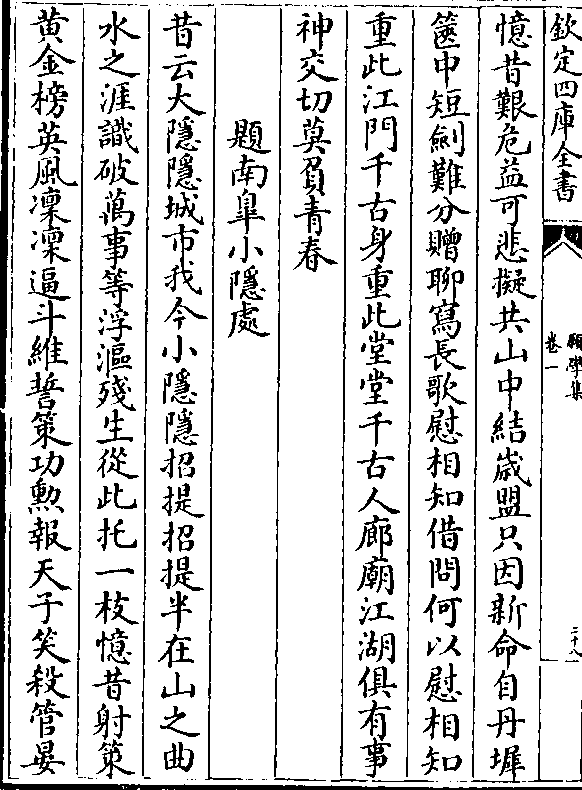 欽定四庫全書
願學集
卷一
二十八
憶昔艱危益可悲擬共山中結歲盟只因新命自丹墀
篋中短劍難分贈聊寫長歌慰相知借問何以慰相知
重此江門千古身重此堂堂千古人廊廟江湖俱有事
神交切莫負青春
題南臯小隱處
昔云大隱隱城市我今小隱隱招提招提半在山之曲
水之涯識破萬事等浮漚殘生從此托一枝憶昔射策
黄金榜英風凜凜逼斗維誓策功勲報天子笑殺管晏